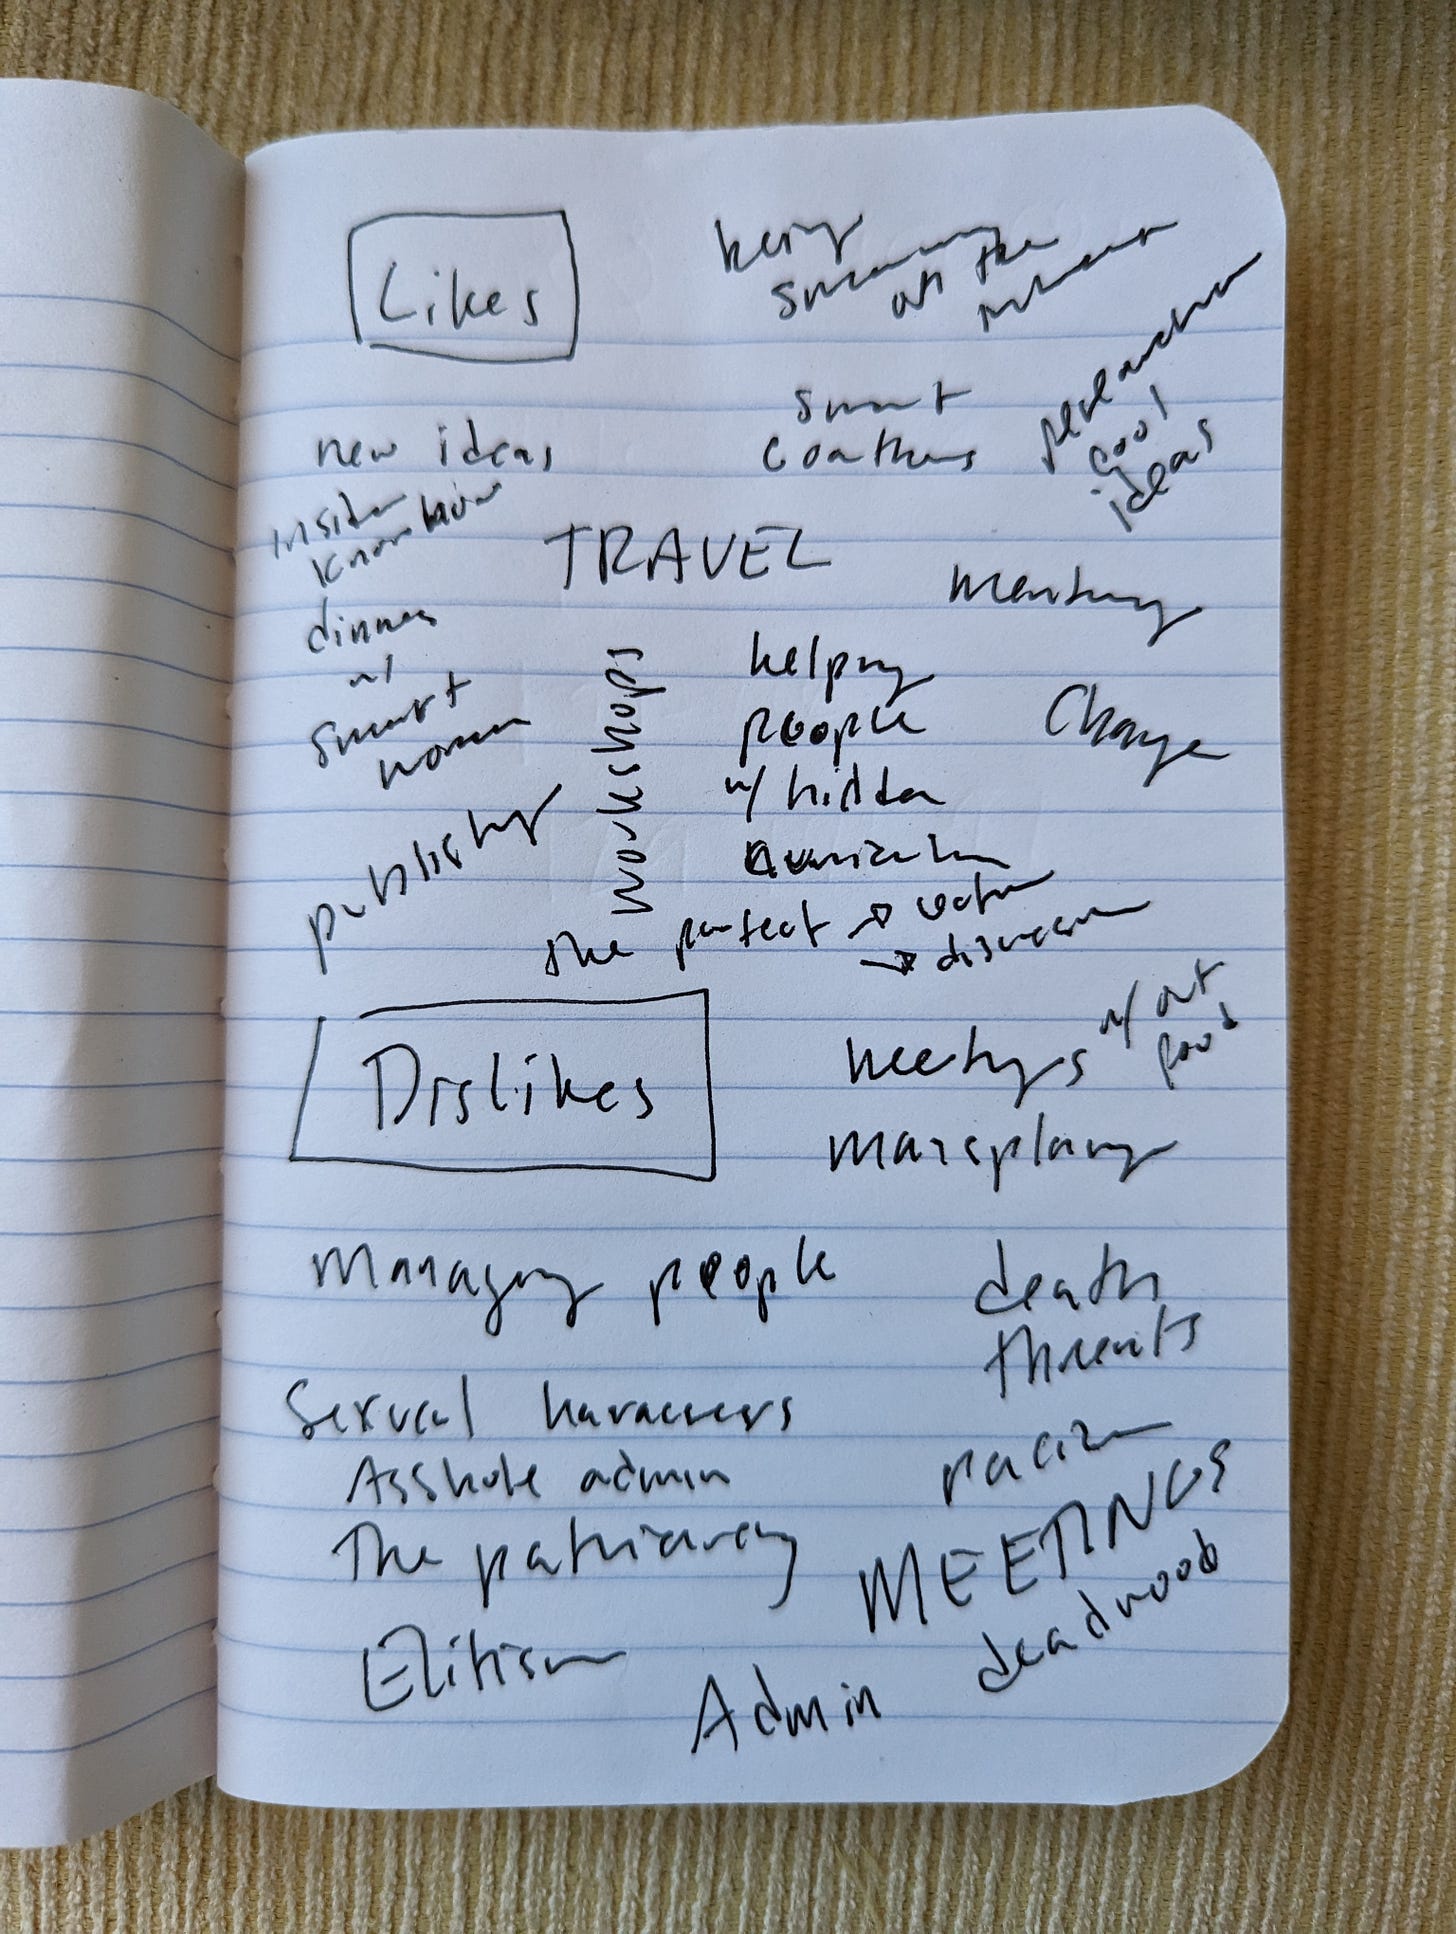 Likes
being
on the
new ideas
smart
coauthors
cool
ideas
insider
know how
TRAVEL
mentoring
dinners
w/
smart
women
workshops
helping
people
w/ hidden
curriculum
Change
publishing
the perfect → lecture
→ discussion
Dislikes
meetings w/out
food
mansplaining
Managing people
death
threats
Sexual harassers
Asshole admin
racism
The patriarchy
MEETINGS
deadwood
Elitism
Admin